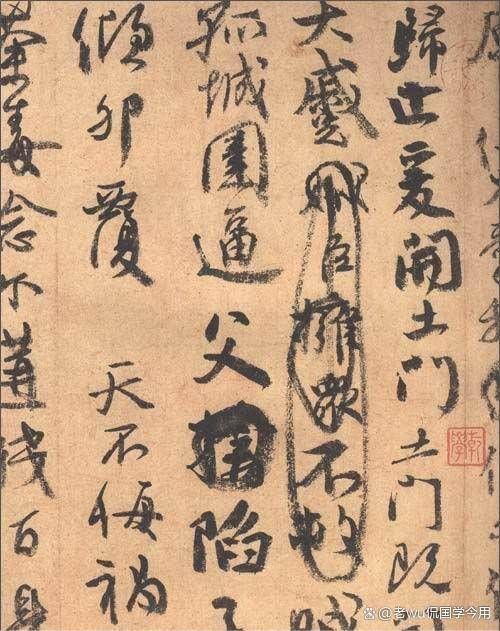 歸止爰開土門土門既
大蹙賊臣擁衆不救賊
孤城圍逼父陷子
傾卵覆 天不悔禍
荼毒念爾遘殘百身
@老wu侃国学今用